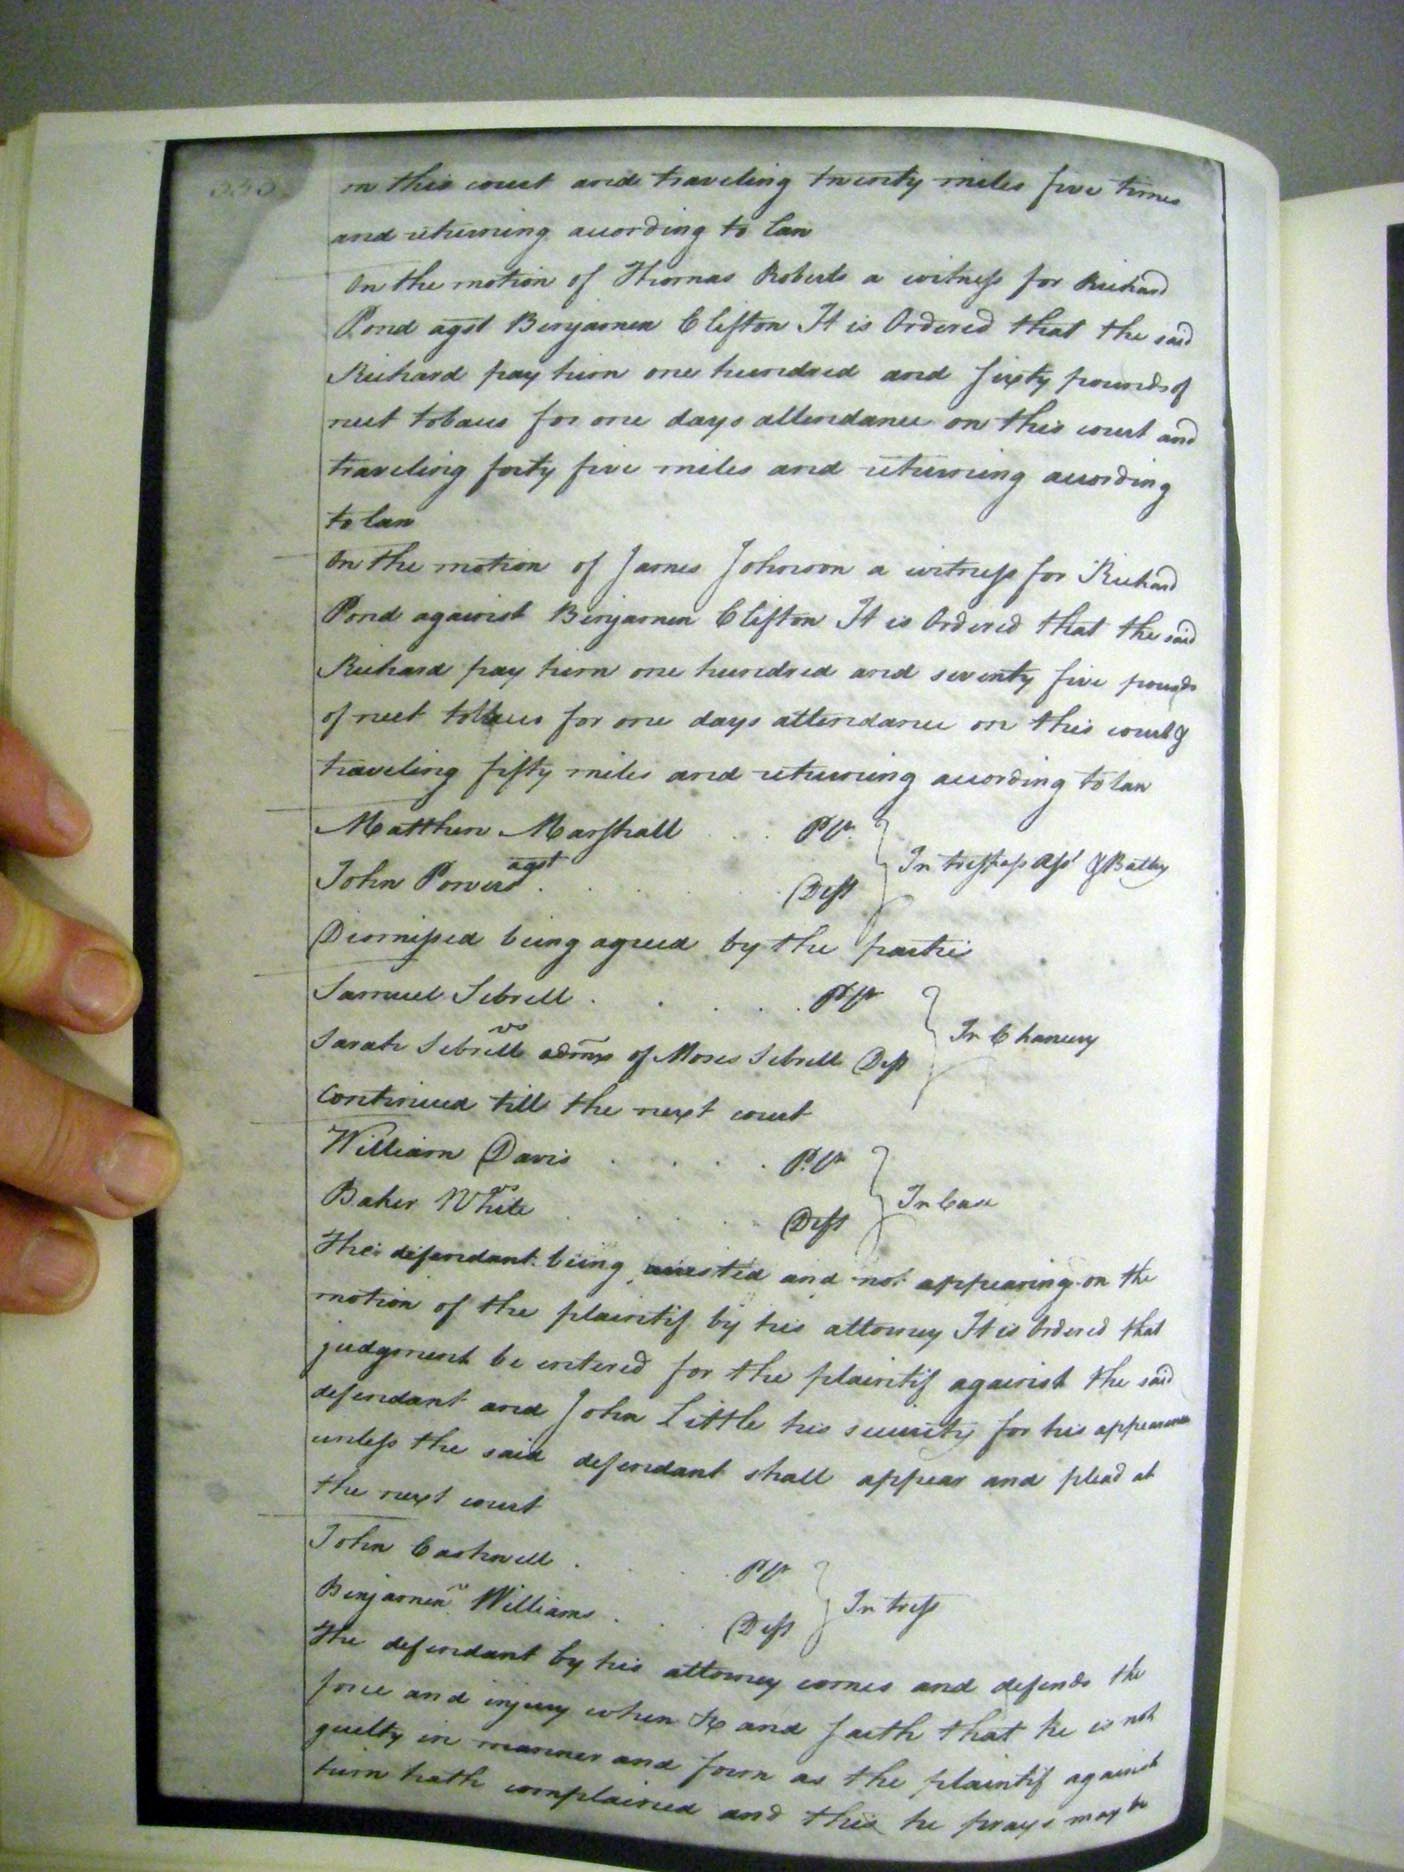 on this court and traveling twenty miles five times
and returning according to law
On the motion of Thomas Roberts a witness for Richard
Pond agst Benjamen Clifton It is Ordered that the said
Richard pay him one hundred and sixty pounds of
neet tobacco for one days attendance on this court and
traveling forty five miles and returning according
to law
On the motion of James Johnson a witness for Richard
Pond against Benjamen Clifton It is Ordered that the said
Richard pay him one hundred and seventy five pounds
of neet tobacco for one days attendance on this court &
traveling fifty miles and returning according to law
Matthew Marshall Pltf
agst In trespass Asst & Battry
John Powers Deft
Dismissed being agreed by the parties
Samuel Sebrell Pltf
vs In Chancery
Sarah Sebrell admx of Moses Sebrell Deft
Continued till the next court
William Davis Pltf
vs In Case
Baker White Deft
The defendant being arrested and not appearing on the
motion of the plaintif by his attorney It is Ordered that
judgment be entered for the plaintif against the said
defendant and John Little his security for his appearance
unless the said defendant shall appear and plead at
the next court
John Cashwell Pltf
vs In tress
Benjamen Williams Deft
The defendant by his attorney comes and defends the
force and injury when &c and saith that he is not
guilty in manner and form as the plaintif against
him hath complained and this he prays may be